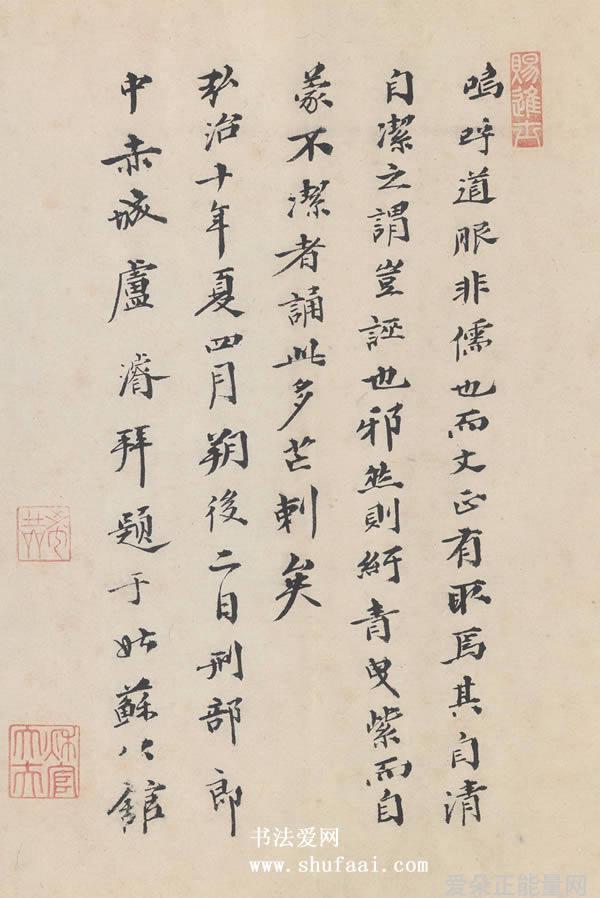 賜進士
嗚呼道服非儒也而文正有取焉其自清
自潔之謂豈誣也邪然則紆青曳紫而自
蒙不潔者誦此多芒刺矣
弘治十年夏四月朔後二日刑部郎
中赤城盧濬拜題于姑蘇公館
希喆
秋官大夫
书法爱网
www.shufaai.com
爱朵正能量网